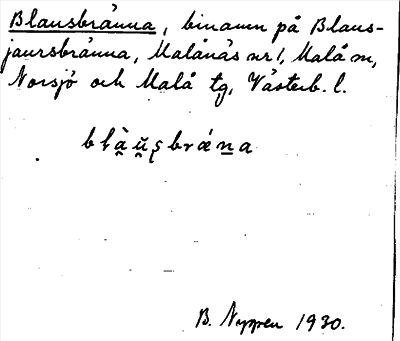 Blausbränna, binamn på Blaus-
jaursbränna, Malånäs nr 1, Malå m,
Norsjö och Malå tg, Västerb. l.
B. Nyman 1930.